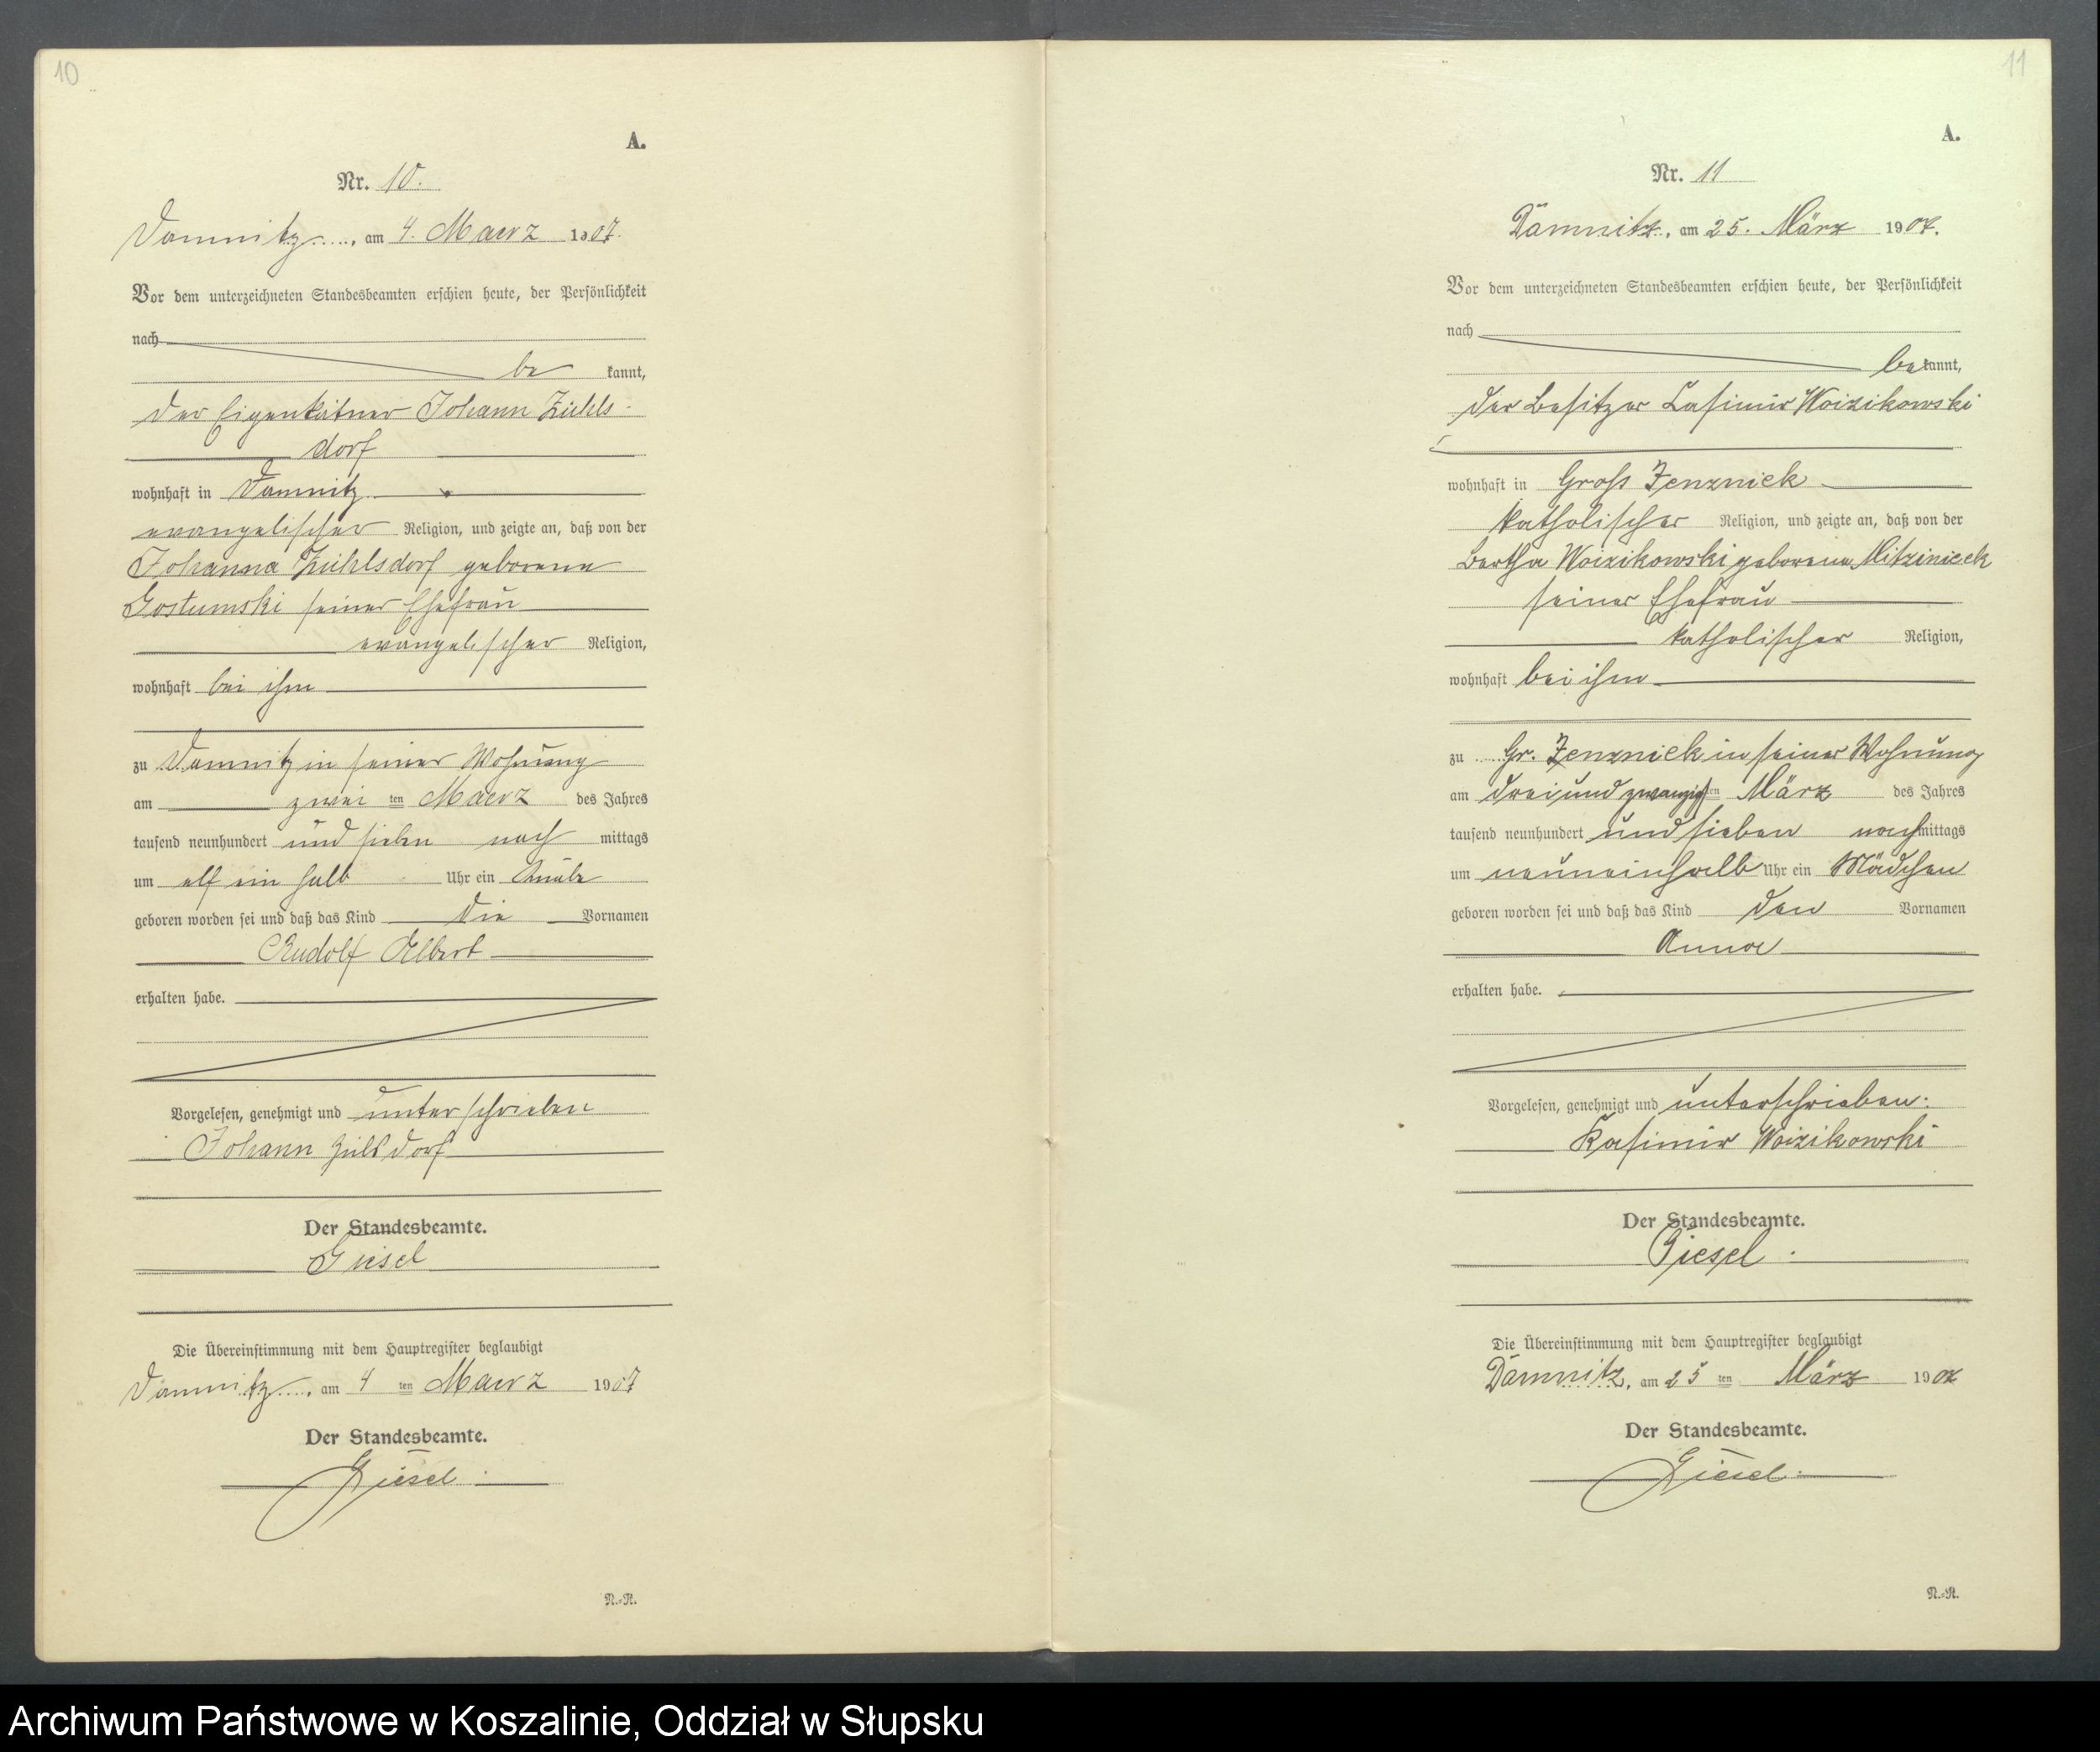 10
A.
Nr. 10.
Damnitz, am 4. Maerz 1907.
Vor dem unterzeichneten Standesbeamten erschien heute, der Persönlichkeit
nach
be kannt,
der Eigenkätner Johann Zühls-
dorf
wohnhaft in Damnitz
evangelischer Religion, und zeigte an, daß von der
Johanna Zühlsdorf geborene
Gostumski seiner Ehefrau
evangelischer Religion,
wohnhaft bei ihm
zu Damnitz in seiner Wohnung
am zwei ten Maerz des Jahres
tausend neunhundert und sieben nach mittags
um elf ein halb Uhr ein Knabe
geboren worden sei und daß das Kind die Vornamen
Rudolf Albert
erhalten habe.
Vorgelesen, genehmigt und unterschrieben
Johann Zülsdorf
Der Standesbeamte.
Giesel
Die Übereinstimmung mit dem Hauptregister beglaubigt
Damnitz, am 4 ten Maerz 1907
Der Standesbeamte.
Giesel.
N.-R.
11
A.
Nr. 11
Damnitz, am 25. März 1907.
Vor dem unterzeichneten Standesbeamten erschien heute, der Persönlichkeit
nach
bekannt,
der Besitzer Casimir Woizikowski
wohnhaft in Groß Jenznick
katholischer Religion, und zeigte an, daß von der
Bertha Woizikowski geborene
seiner Ehefrau
katholischer Religion,
wohnhaft bei ihm
zu Gr. Jenznick in seiner Wohnung
am dreiundzwanzigsten März des Jahres
tausend neunhundert und sieben nachmittags
um neuneinhalb Uhr ein Mädchen
geboren worden sei und daß das Kind den Vornamen
Anna
erhalten habe.
Vorgelesen, genehmigt und unterschrieben.
Kasimir Woizikowski
Der Standesbeamte.
Giesel.
Die Übereinstimmung mit dem Hauptregister beglaubigt
Damnitz, am 25 ten März 1907
Der Standesbeamte.
Giesel.
N.-R.
Archiwum Państwowe w Koszalinie, Oddział w Słupsku